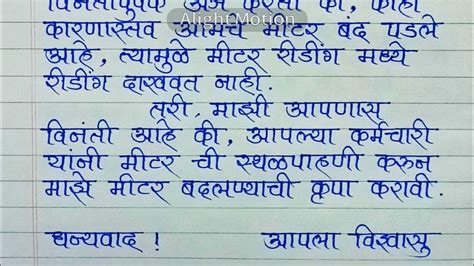 विनंतीपूर्वक अर्ज करतो की, काही
Alight Motion
कारणास्तव आमचे मीटर बंद पडले
आहे, त्यामुळे मीटर रीडींग मध्ये
रीडींग दाखवत नाही.
तरी, माझी आपणास
विनंती आहे की, आपल्या कर्मचारी
यांनी मीटर ची स्थळपाहणी करुन
माझे मीटर बदलण्याची कृपा करावी.
धन्यवाद ! आपला विश्वासु